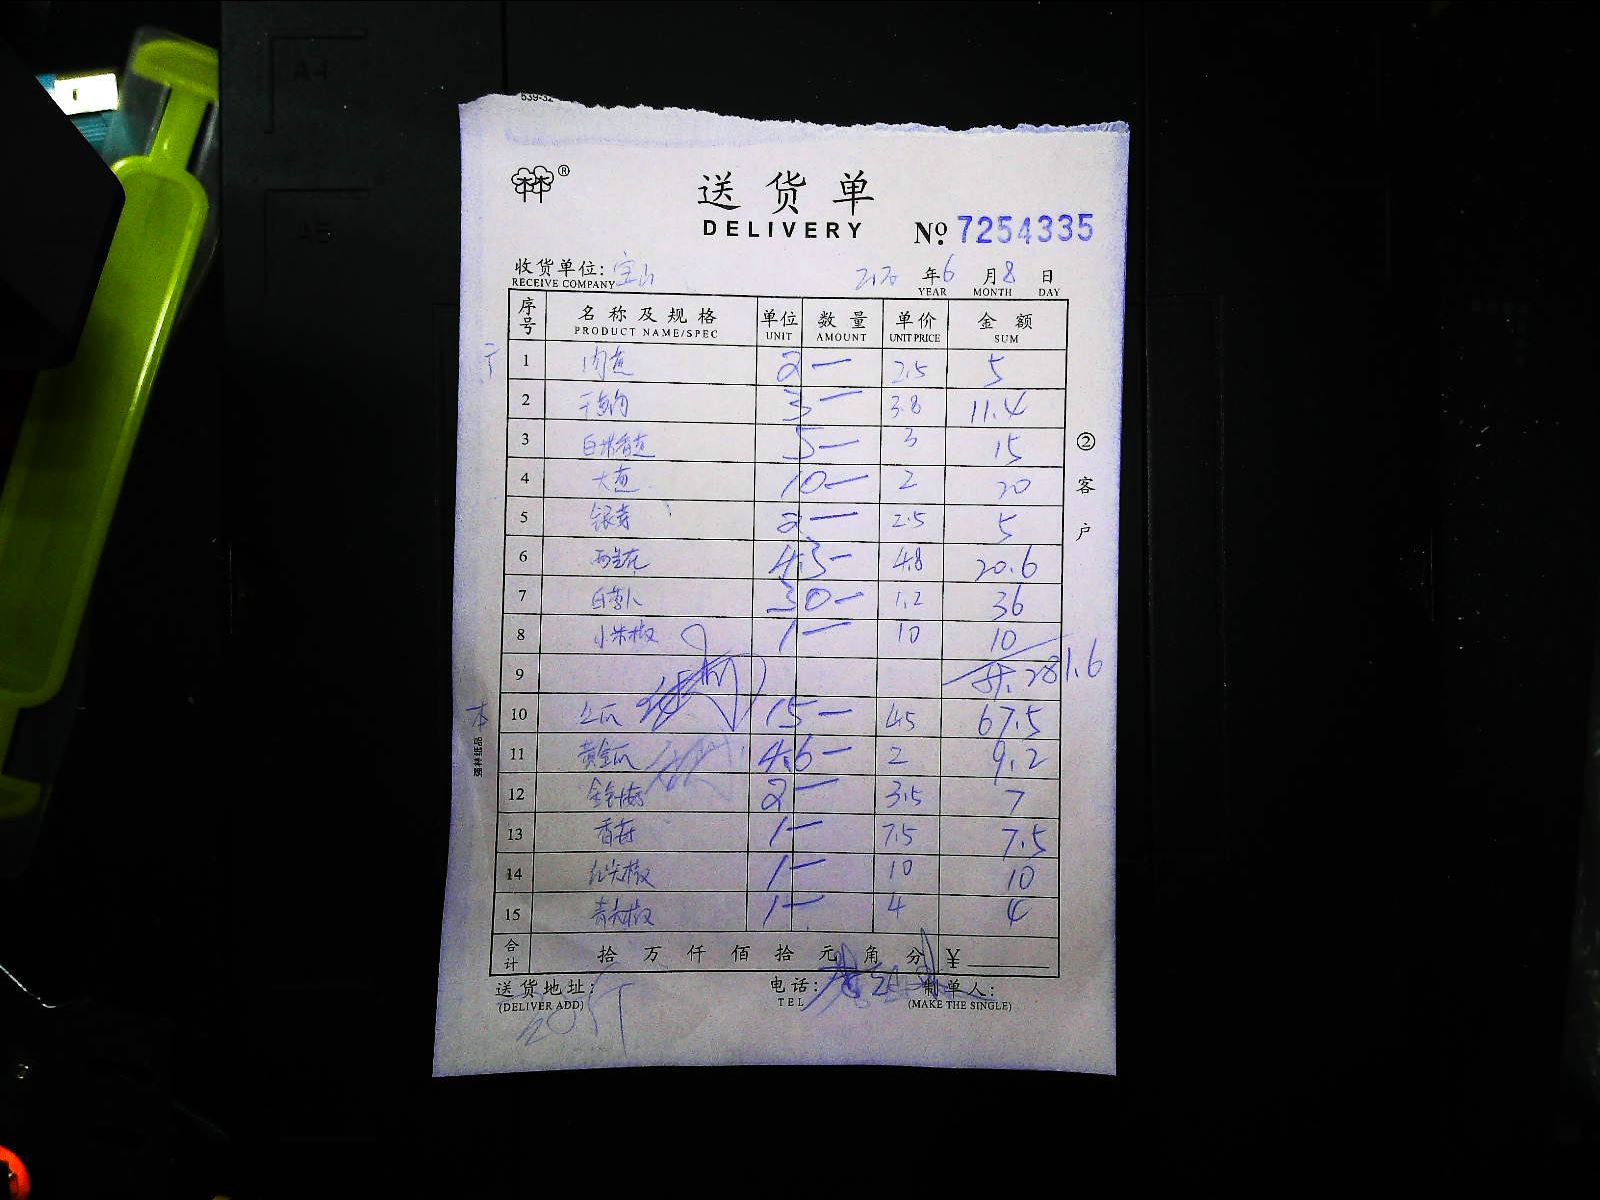 539-32
® 送货单
DELIVERY
No. 7254335
收货单位: 宝山 年 6 月 8 日
RECEIVE COMPANY YEAR MONTH DAY
序号 名称及规格 单位 数量 单价 金额
PRODUCT NAME/SPEC UNIT AMOUNT UNIT PRICE SUM
1 2 2.5 5
2 3 3.8 11.4
3 5 3 15
4 10 2 20
5 银芽 2 2.5 5
6 西兰花 4.3 4.8 20.6
7 白萝卜 30 1.2 36
8 小米椒 1 10 10
9 共: 281.6
10 15 4.5 67.5
11 黄金瓜 4.6 2 9.2
12 金针菇 2 3.5 7
13 香菇 1 7.5 7.5
14 红尖椒 1 10 10
15 青尖椒 1 4 4
合计 拾 万 仟 佰 拾 元 角 分 ¥
送货地址: 电话: 制单人:
(DELIVER ADD) TEL (MAKE THE SINGLE)
② 客户
强林纸品
A4
A5